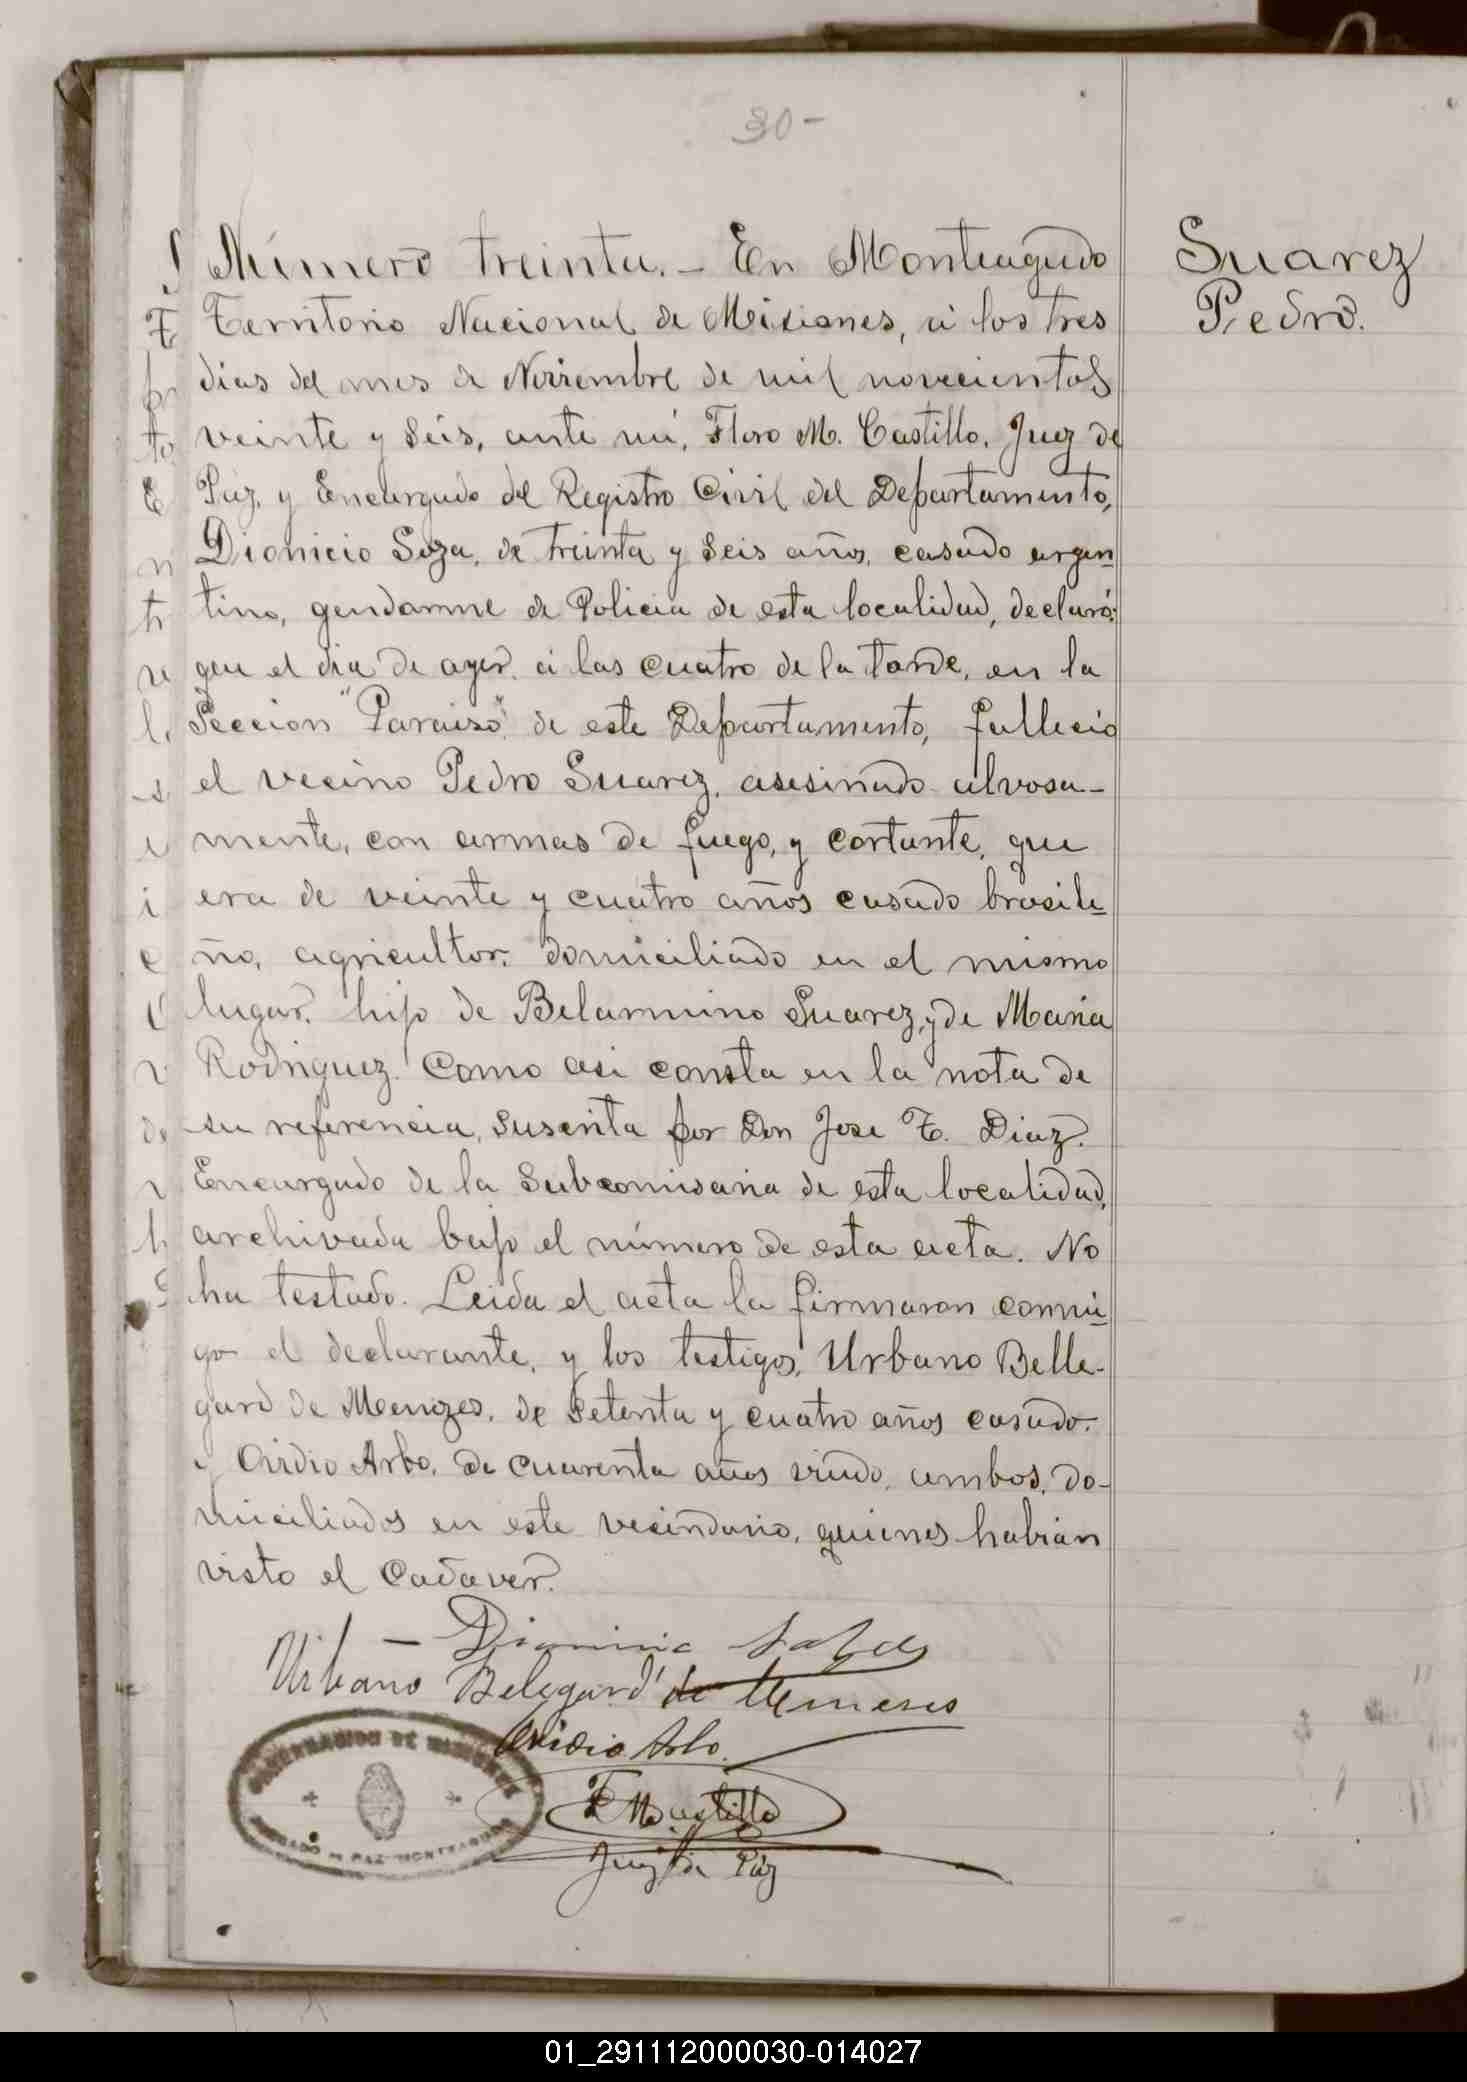 30-
Suarez
Pedro.
Número treinta. - En Monteagudo
Territorio Nacional de Misiones, á los tres
dias del mes de Noviembre de mil novecientos
veinte y seis, ante mí, Floro M. Castillo, Juez de
Paz, y Encargado del Registro Civil del Departamento,
Dionicio Soza, de treinta y seis años, casado argen-
tino, gendarme de Policia de esta localidad, declaró:
que el dia de ayer á las cuatro de la tarde, en la
Seccion "Paraiso" de este Departamento, fallecio
el vecino Pedro Suarez, asesinado alvosa-
mente, con armas de fuego, y cortante, que
era de veinte y cuatro años casado brasile-
ño, agricultor, domiciliado en el mismo
lugar, hijo de Belarmino Suarez, y de Maria
Rodriguez. Como asi consta en la nota de
su referencia, suscrita por Don Jose T. Diaz.
Encargado de la Subcomisaria de esta localidad,
archivada bajo el número de esta acta. No
ha testado. Leida el acta la firmaron conmi-
go el declarante, y los testigos, Urbano Belle-
gard de Menezes, de setenta y cuatro años casado.
y Ovidio Arbo, de cuarenta años viudo, ambos, do-
miciliados en este vecindario, quienes habian
visto el Cadaver.
Urbano Belegard de Meneses
Ovidio Arbo.
F M Castillo
Juez de Paz
GOBERNACION DE MISIONES
JUZGADO DE PAZ MONTEAGUDO
01_291112000030-014027